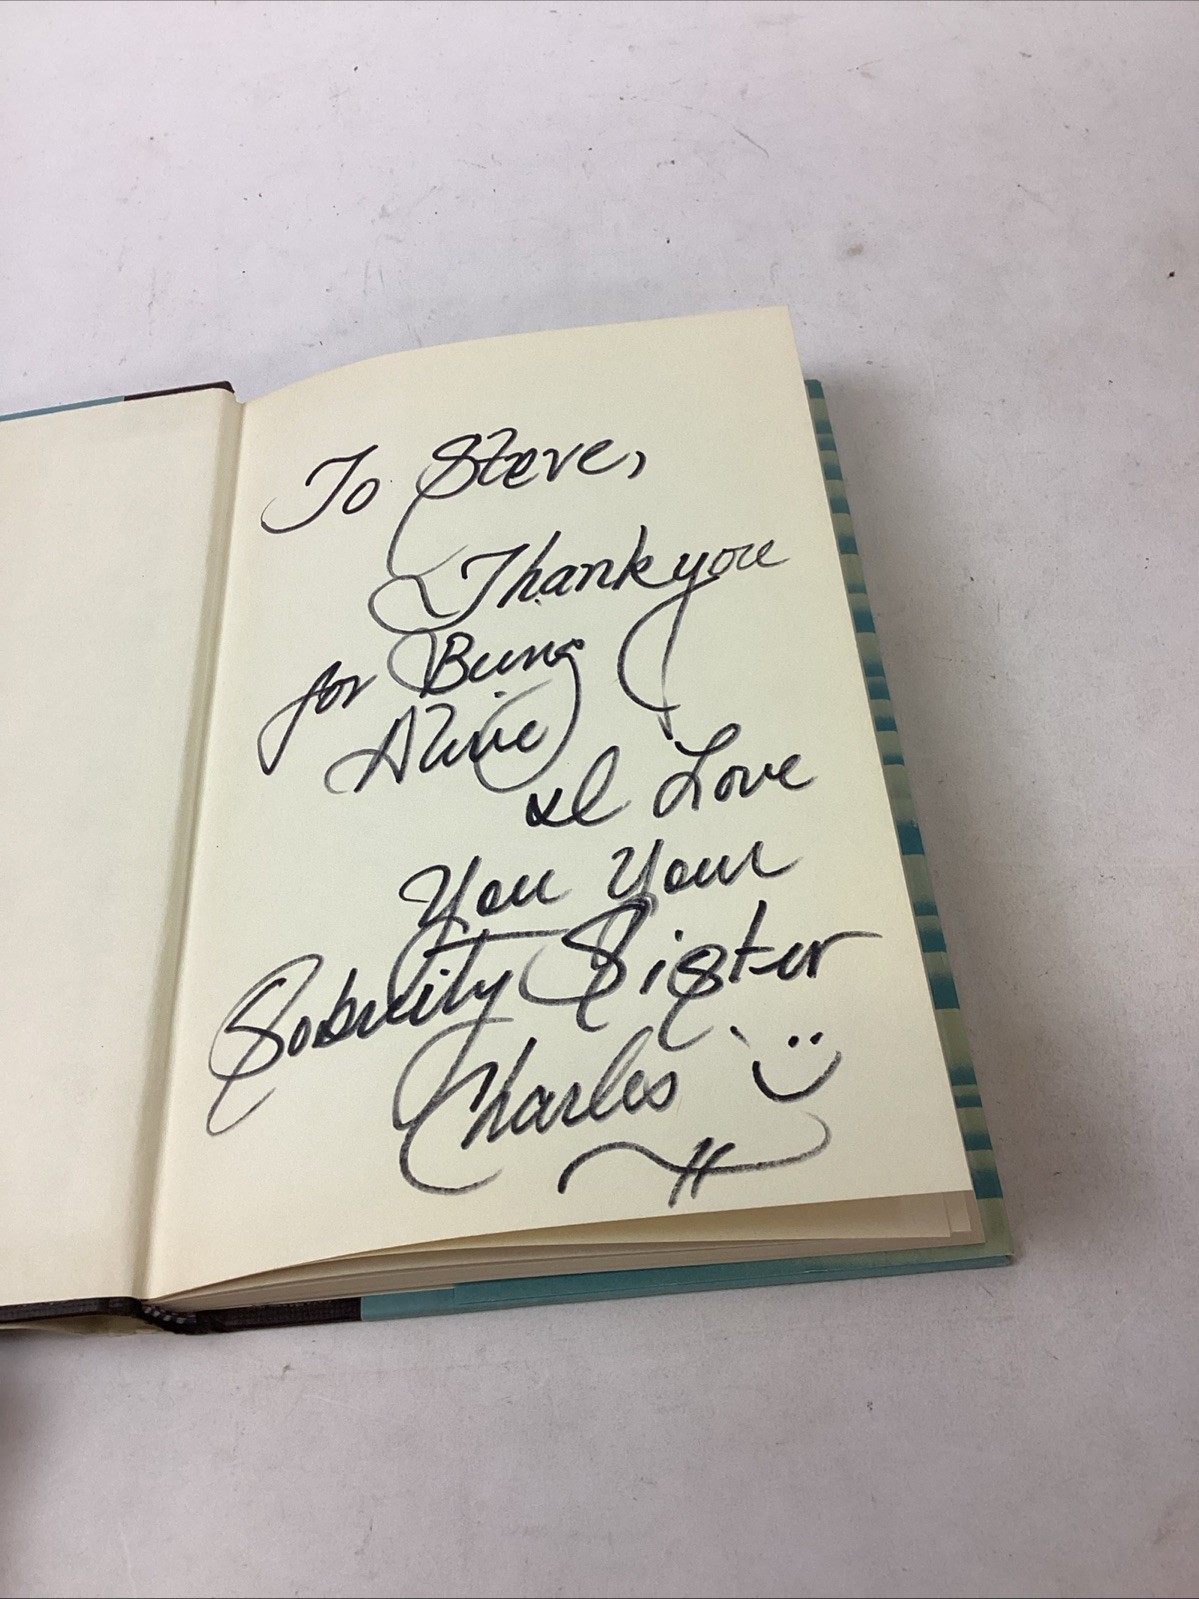 To Steve,
Thank you
for Being
Alive
& I Love
You Your
Sobreity Sister
Charles